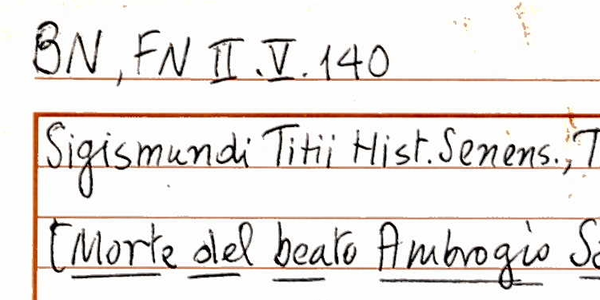 BN, FN II.V.140
Sigismundi Titii Hist. Senens.,
[Morte del beato Ambrogio